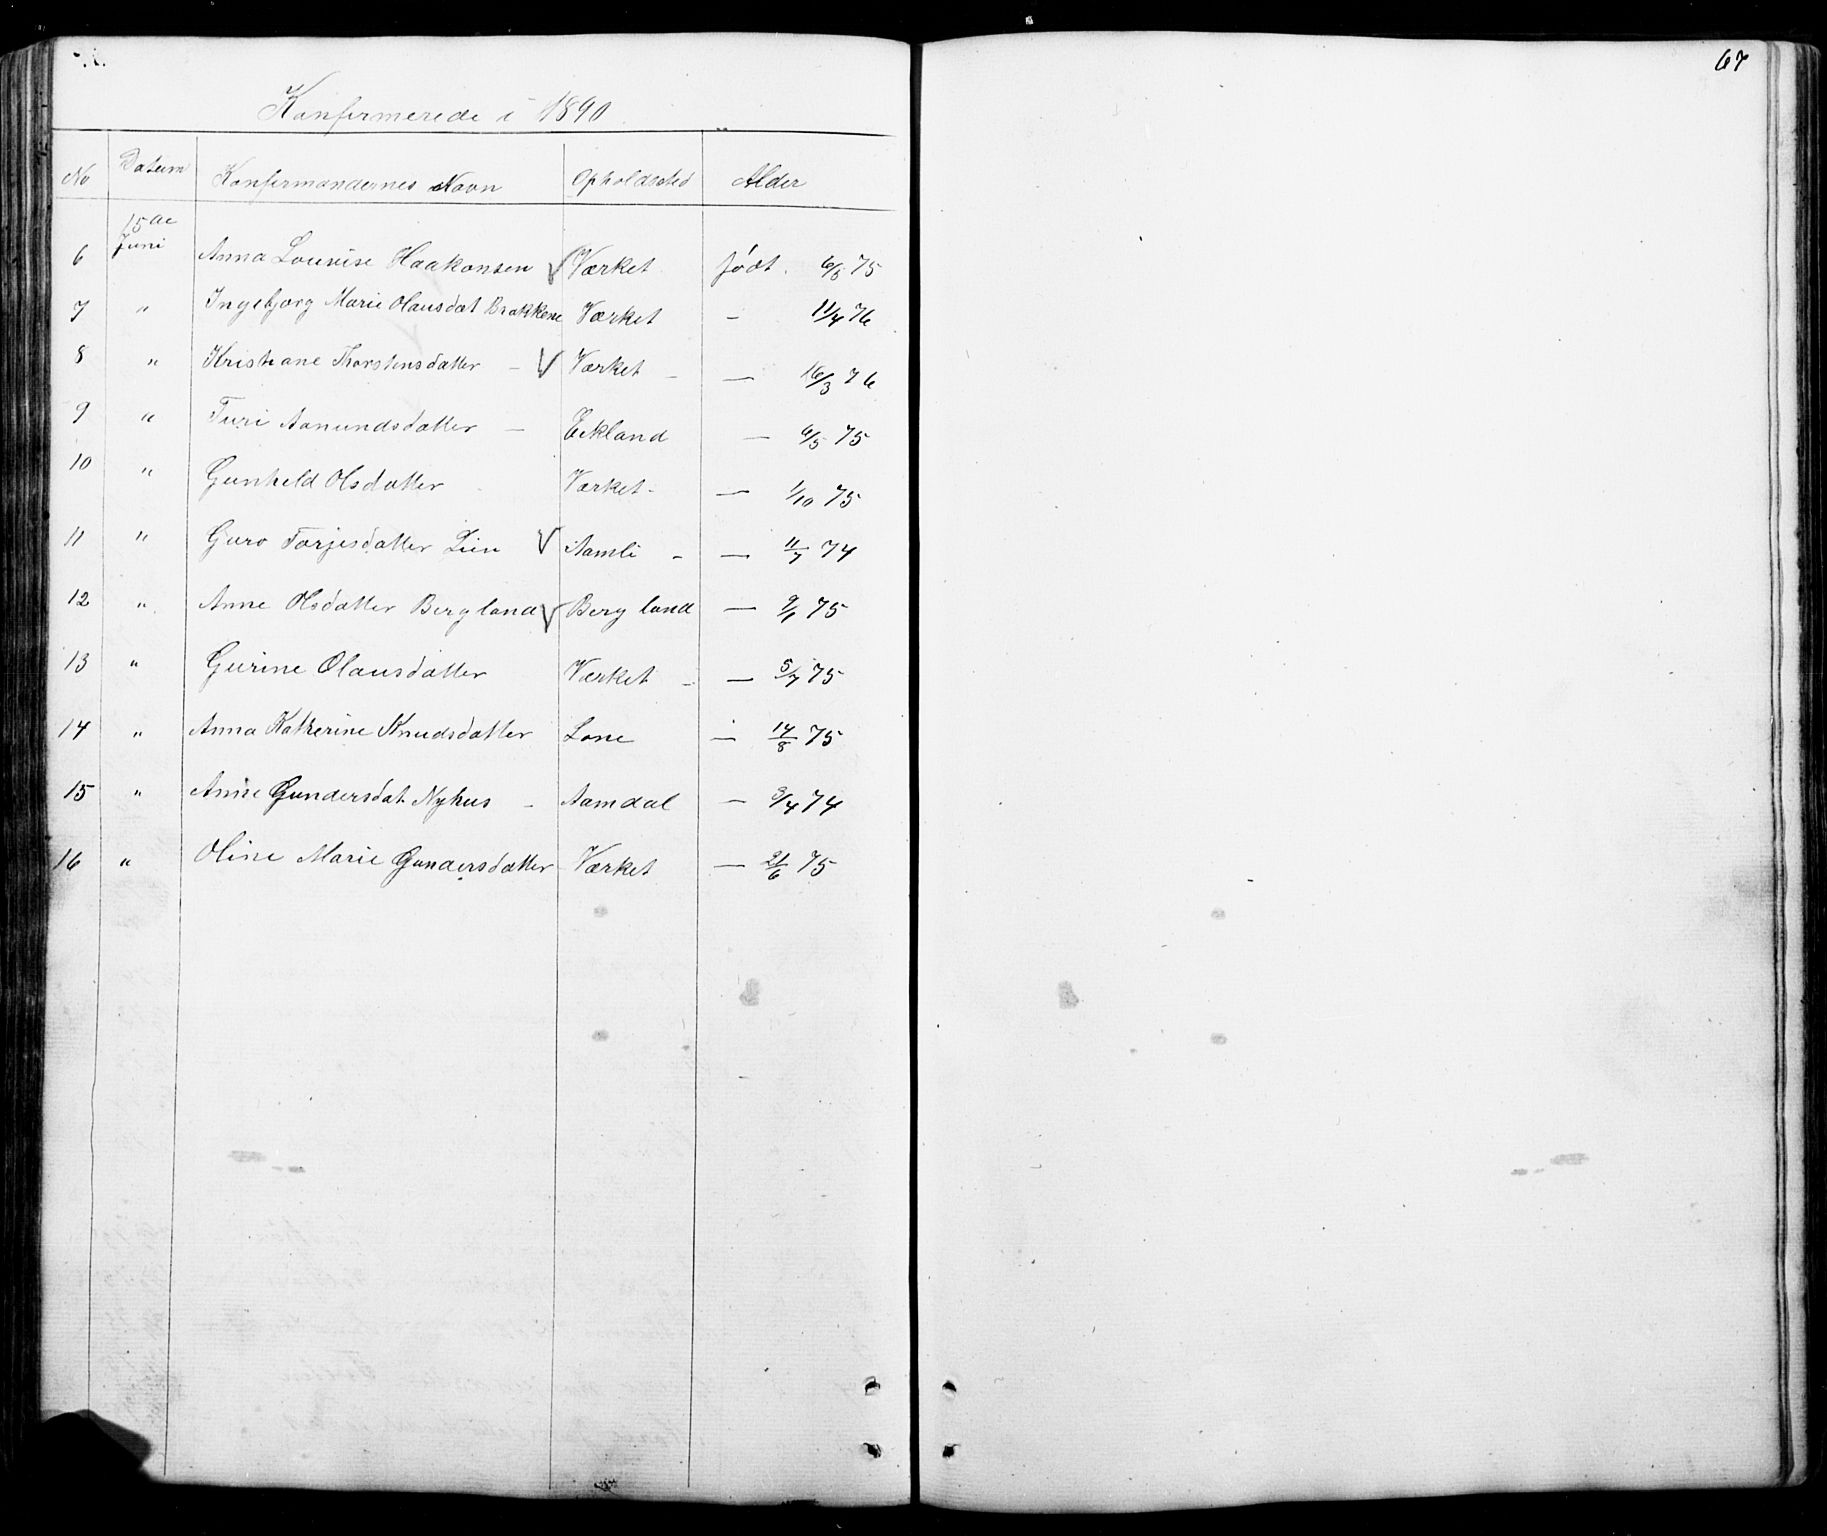 67
Konfirmerede i 1890
No Datum Konfirmandernes Navn Opholdsted Alder
15de
Juni
6 Anna Louvise Haakonsen Værket født 6/8 75
7 " Ingebjorg Marie Olausdat Brakkene Værket - 11/4 76
8 " Kristiane Thorstensdatter - Værket - — 16/3 76
9 " Turi Aanundsdatter - Eckland — 6/5 75
10 " Gunheld Olsdatter Værket - — 1/10 75
11 " Guro Torjesdatter Lien Aamli - — 11/7 74
12 " Anne Olsdatter Bergland Bergland — 75
13 " Gurine Olausdatter Værket - — 5/7 75
14 " Anna Katherine Knudsdatter Lone — 14/8 75
15 " Anne Gundersdat Nyhus - Aamdal — 3/4 74
16 " Oline Marie Gundersdatter Værket — 21/6 75